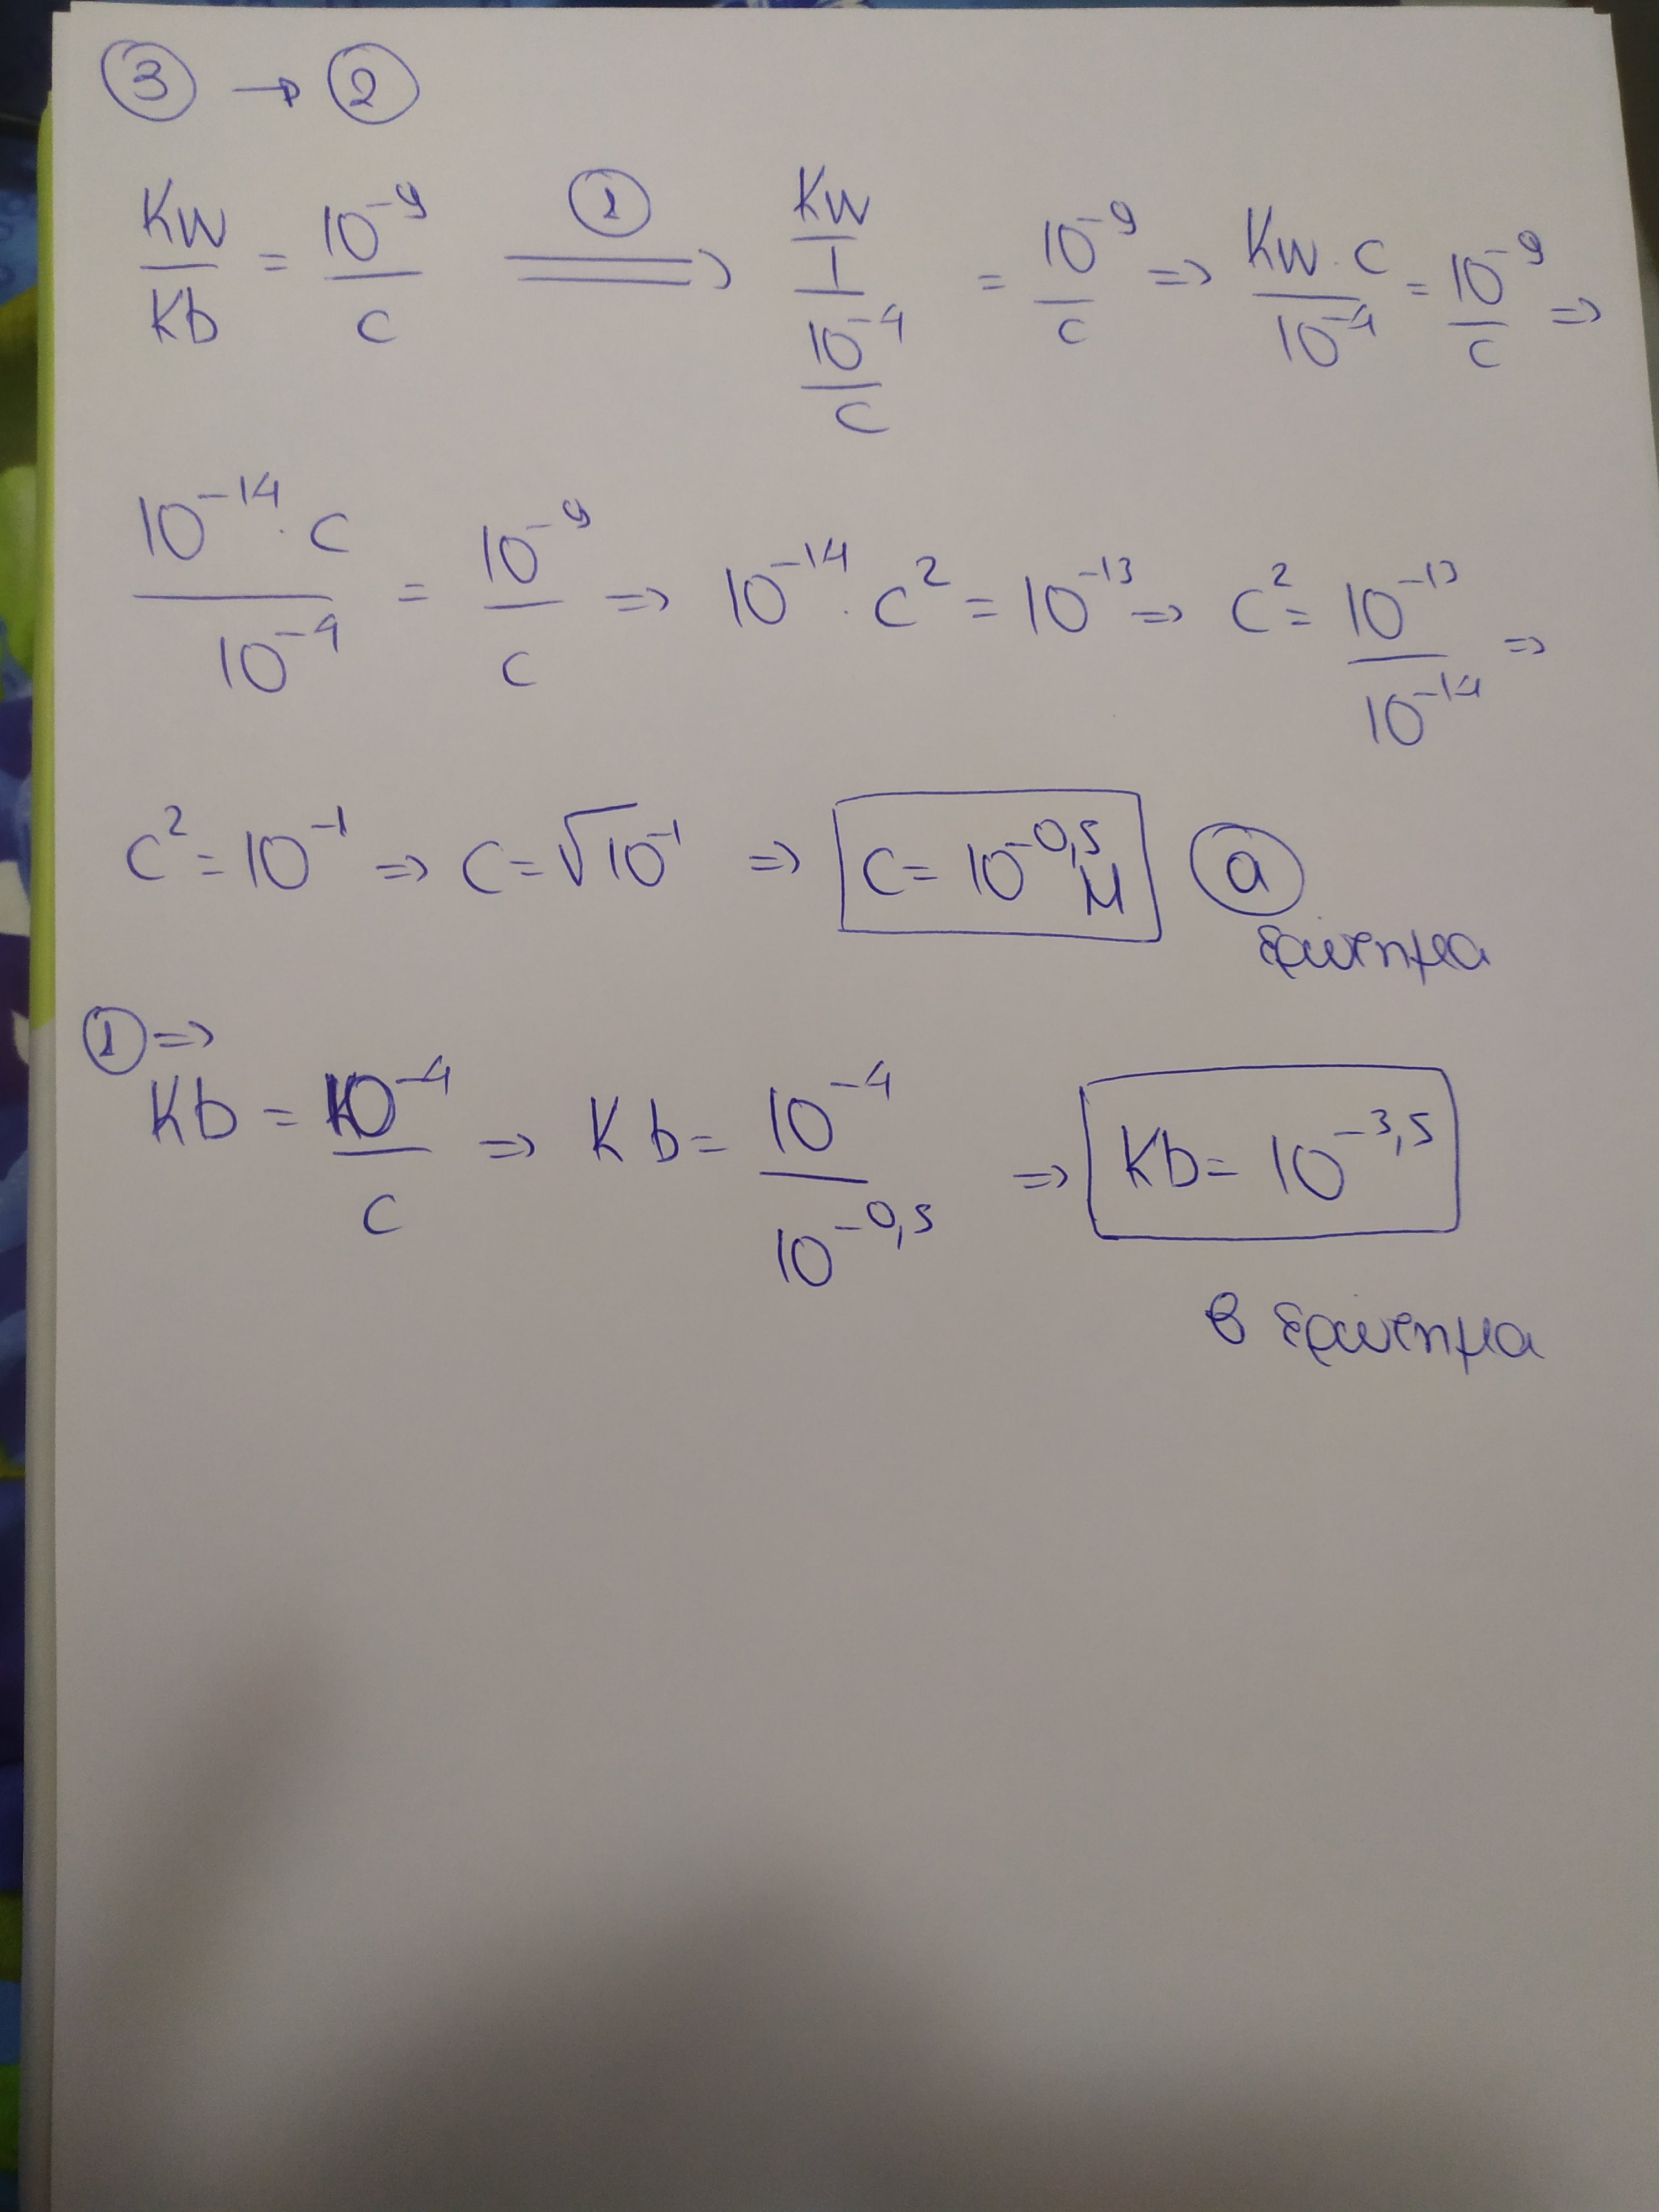 ③ → ②
Kw/Kb = 10⁻⁹/c ①⟹ Kw/(1/(10⁻⁴/c)) = 10⁻⁹/c ⇒ Kw·c/10⁻⁴ = 10⁻⁹/c ⇒
10⁻¹⁴·c/10⁻⁴ = 10⁻⁹/c ⇒ 10⁻¹⁴·c² = 10⁻¹³ ⇒ c² = 10⁻¹³/10⁻¹⁴ ⇒
c² = 10⁻¹ ⇒ c = √10⁻¹ ⇒ c = 10^-0,5 M ⓐ
ερώτημα
① ⇒
Kb = 10⁻⁴/c ⇒ Kb = 10⁻⁴/10^-0,5 ⇒ Kb = 10^-3,5
β ερώτημα